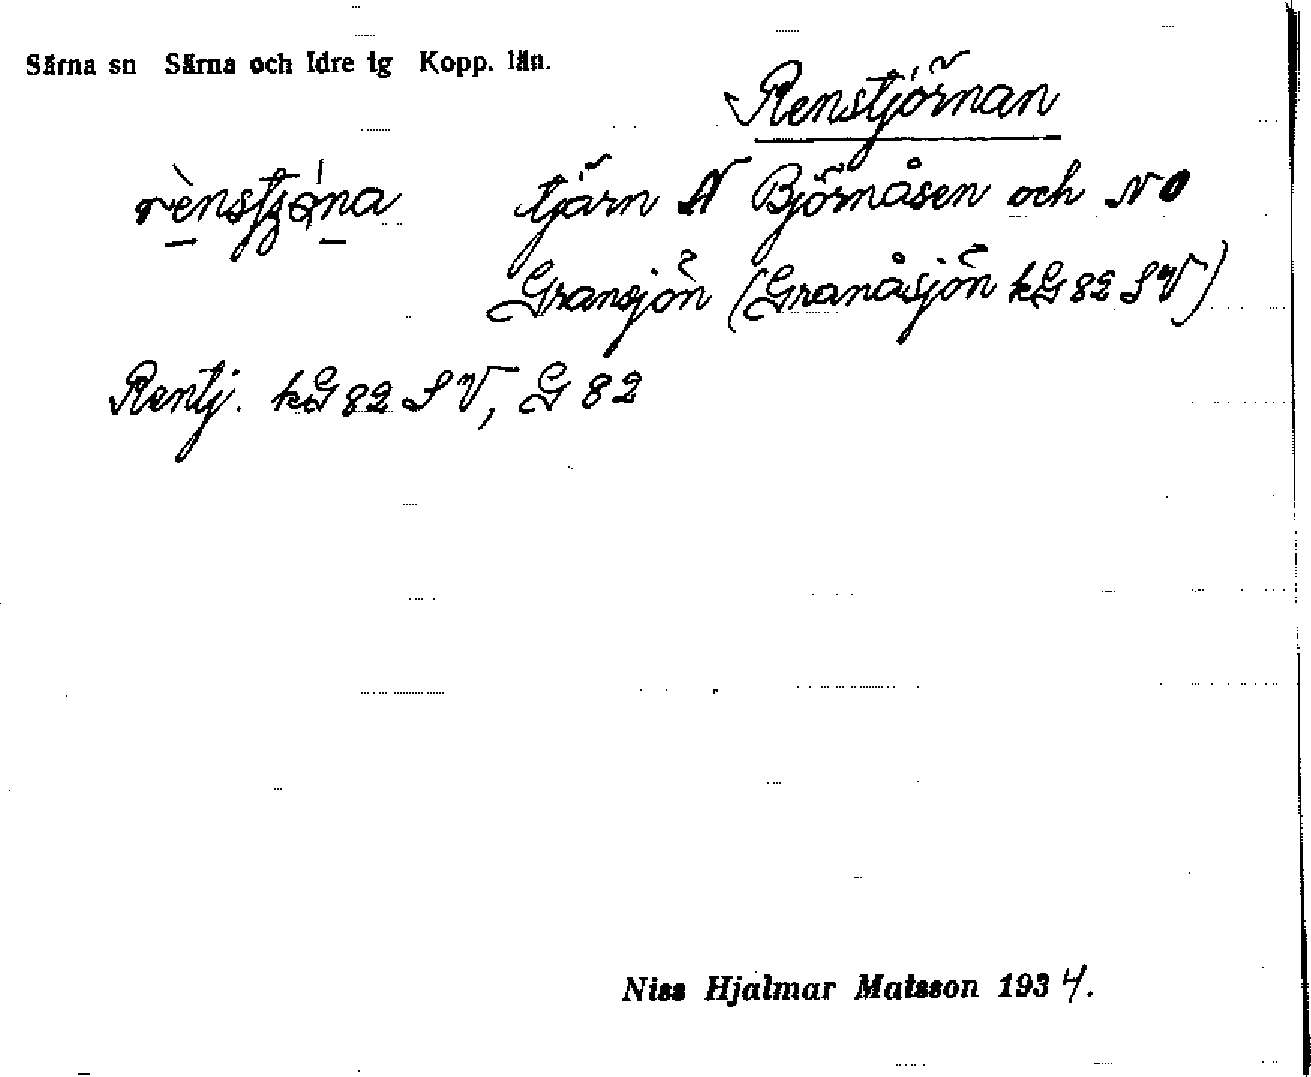 Särna sn Särna och Idre tg Kopp. län.
Renstjörnan
tjärn N Björnåsen och NO
Gransjön (Granåsjön kG 82 SV)
Rentj. kG 82 SV, G 82
Niss Hjalmar Matsson 1934.